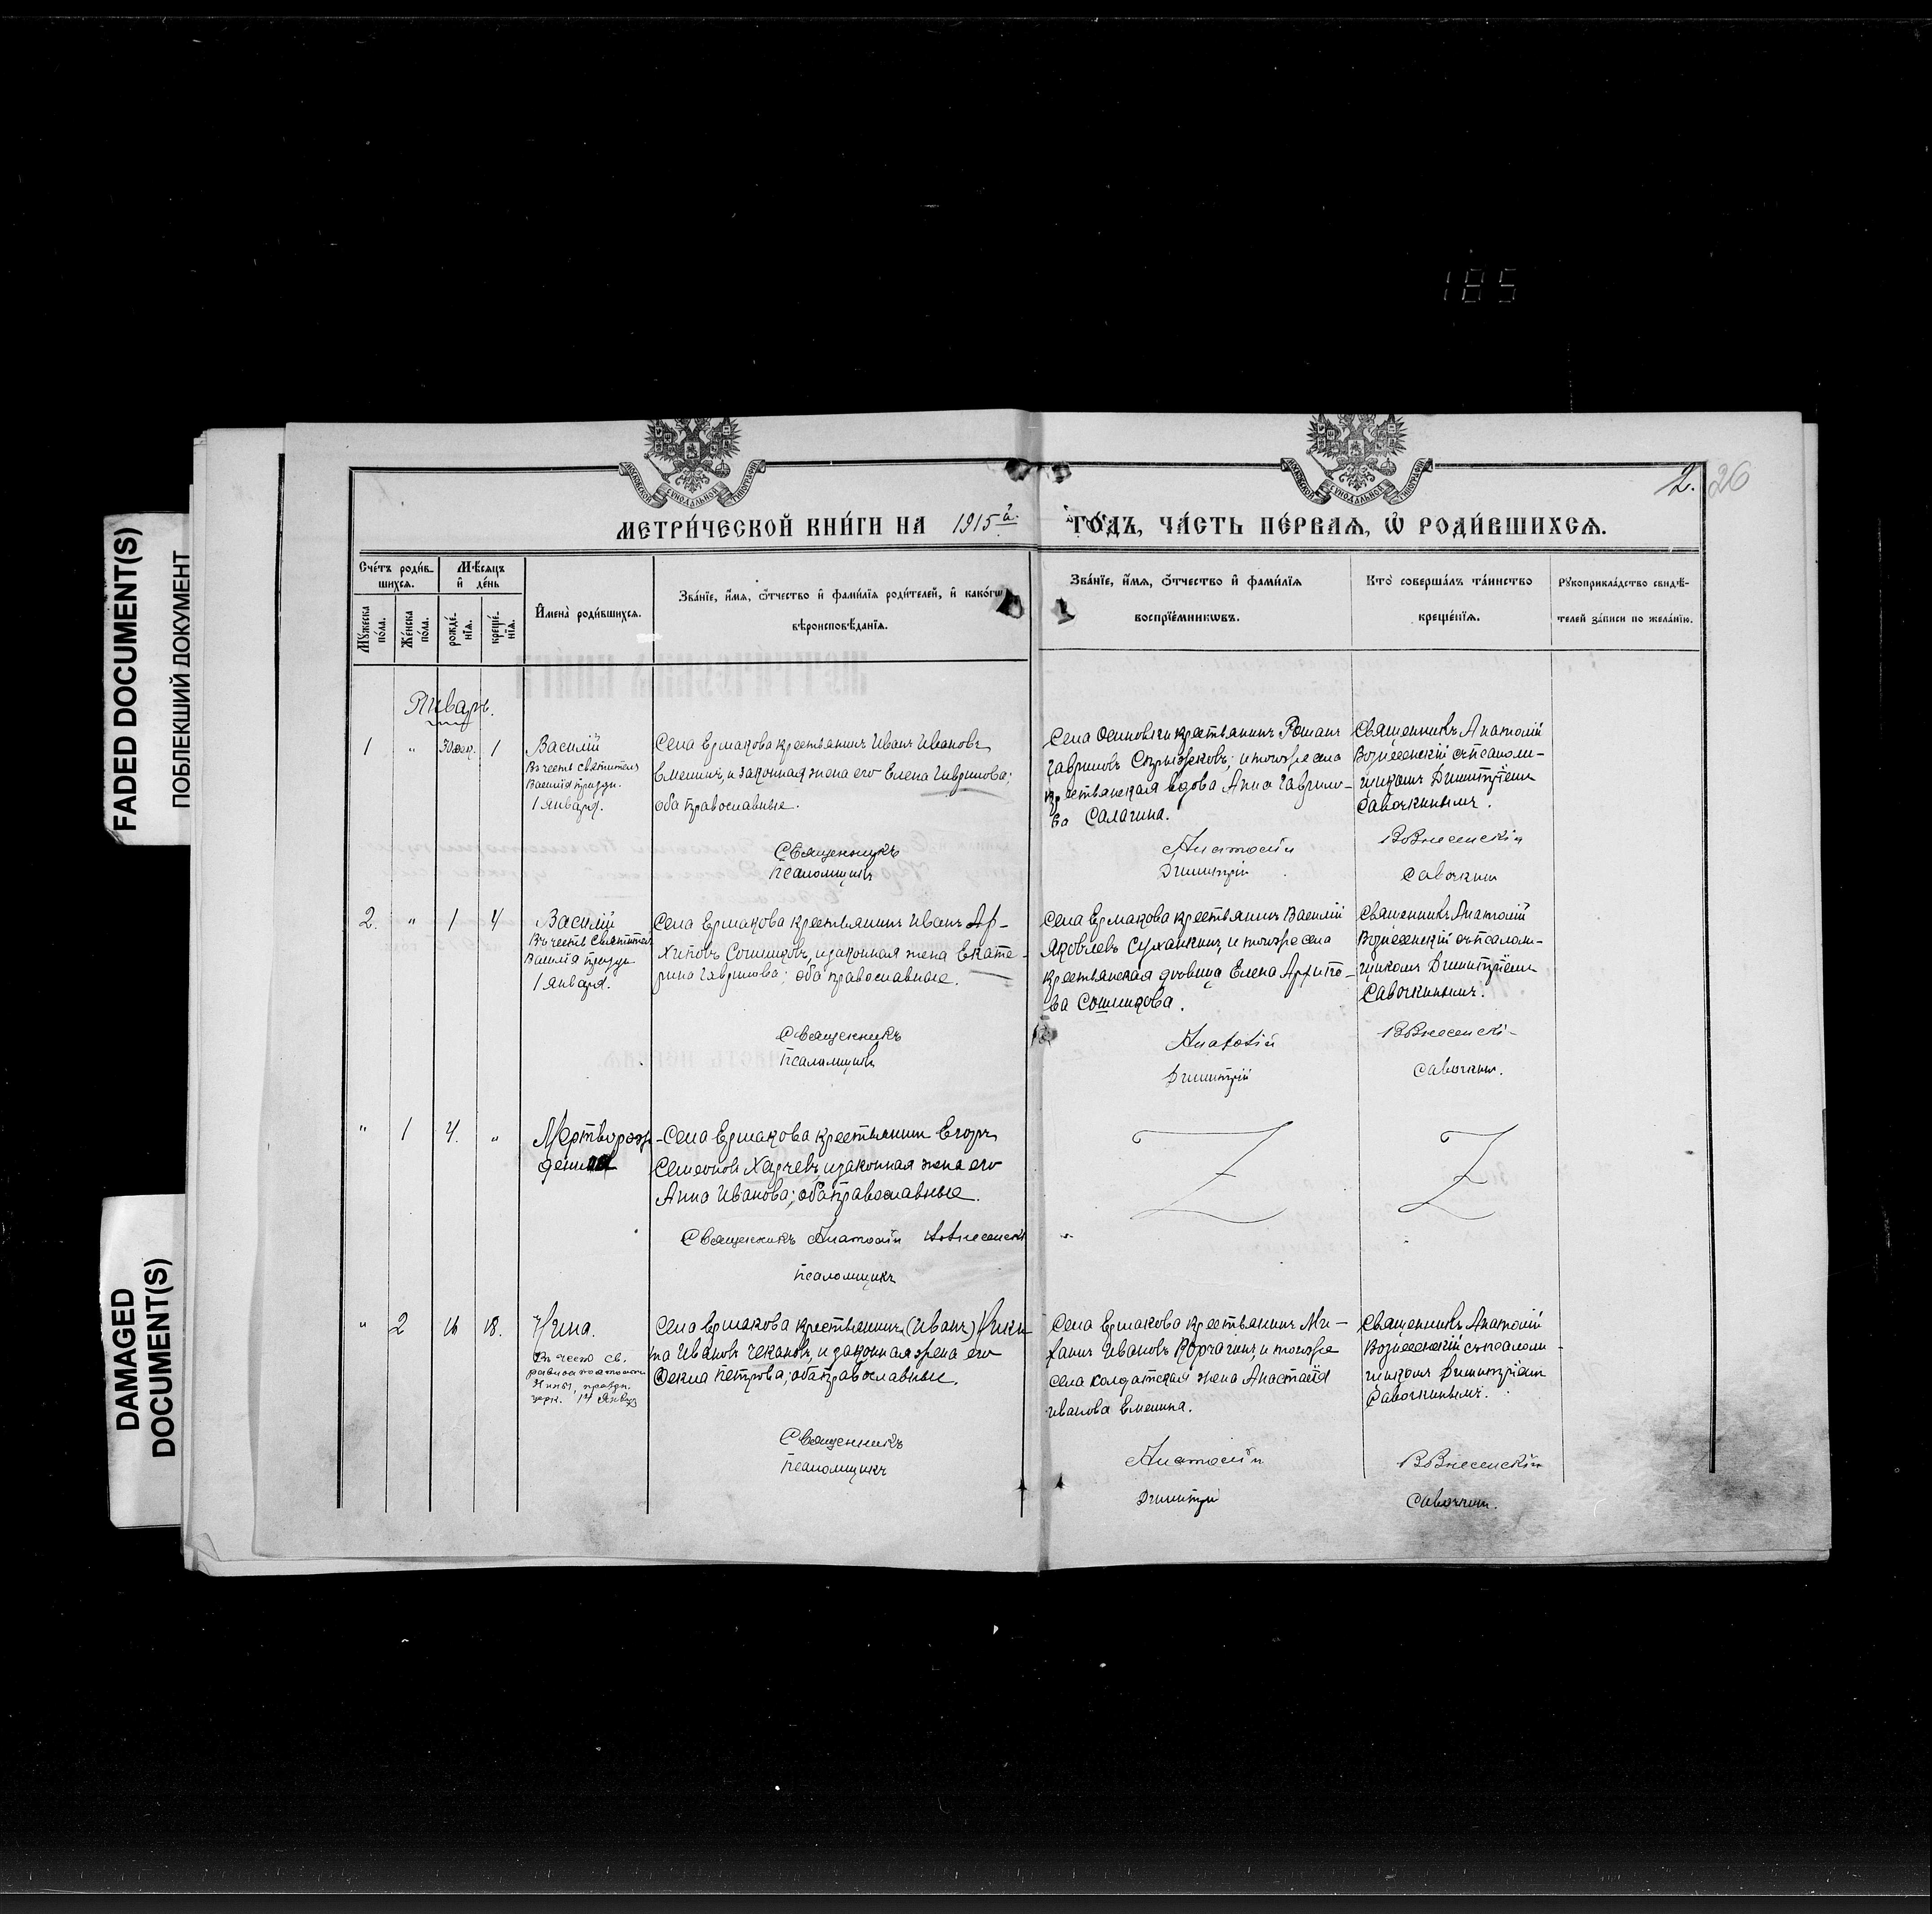 185
FADED DOCUMENT(S)
ПОБЛЕКШИЙ ДОКУМЕНТ
DAMAGED
DOCUMENT(S)
МОСКОВСКОЙ СѴНОДАЛЬНОЙ ТИПОГРАФІИ
МОСКОВСКОЙ СѴНОДАЛЬНОЙ ТИПОГРАФІИ
2. 26
МЕТРИ́ЧЕСКОЙ КНИ́ГИ НА 1915й. ГО́ДЪ, ЧА́СТЬ ПЕ́РВАЯ, Ѡ РОДИ́ВШИХСЯ.
Сче́тъ роди́в
шихся.
Мꙋжеска
по́ла.
Же́нска
по́ла.
Мѣ́сяцъ
и҆ де́нь
рожде́
нїя.
креще́
нїя.
И҆мена̀ роди́вшихся.
Зва́нїе, и҆́мя, ѻ҆́тчество и҆ фами́лїя роди́телей, и҆ како́гѡ
вѣроисповѣ́данїя.
Зва́нїе, и҆́мя, ѻ҆́тчество и҆ фами́лїя
воспрїе́мникѡвъ.
Кто̀ соверша́лъ та́инство
креще́нїя.
Рꙋкоприкла́дство свидѣ́-
телей за́писи по жела́нїю.
Январь.
1 " 30 дек. 1
Василій
Въ честь святителя
Василія праздн.
1 января.
Села Ермакова крестьянинъ Иванъ Ивановъ
Емелинъ, и законная жена его Елена Гаврилова;
оба православные.
Священникъ
Псаломщикъ
Села Осиновки крестьянинъ Романъ
Гавриловъ; и тогоже села
крестьянская вдова Анна Гаврило-
ва Салагина.
Анатолій
Димитрій
Священникъ Анатолій
Вознесенскій съ псалом-
щикомъ Димитріемъ
Савочкинымъ.
Вознесенскій
Савочкин
2. " 1 4
Василій
Въ честь Святителя
Василія праздн
1 января.
Села Ермакова крестьянинъ Иванъ Ар-
хиповъ Сошниковъ, и законная жена Екате-
рина Гаврилова; оба православные.
Священникъ
Псаломщикъ
Села Ермакова крестьянинъ Василій
Яковлевъ Суханкинъ, и тогоже села
крестьянская дѣвица Елена Архипо-
ва Сошникова.
Анатолій
Димитрій
Священникъ Анатолій
Вознесенскій съ псалом-
щикомъ Димитріемъ
Савочкинымъ.
Вознесенскі-
Савочкин.
" 1 4. "
Мертворож-
денная
Села Ермакова крестьянинъ Егоръ
Семеновъ, и законная жена его
Анна Иванова; оба православные.
Священникъ Анатолій Вознесенскій
Псаломщикъ
" 2 16 18.
Нина.
Въ честь св.
равноапостольн
Нины, праздн.
14 Янв
Села Ермакова крестьянинъ (Иванъ) Ники-
та Ивановъ Чекановъ, и законная жена его
Ѳекла Петрова; оба православные.
Священникъ
Псаломщикъ
Села Ермакова крестьянинъ Ми-
хаилъ Ивановъ Корчагинъ, и тогоже
села солдатская жена Анастасія
Иванова Емелина.
Анатолій
Димитрій
Священникъ Анатолій
Вознесенскій съ псалом-
щикомъ Димитріемъ
Савочкинымъ.
Вознесенскій
Савочкин.